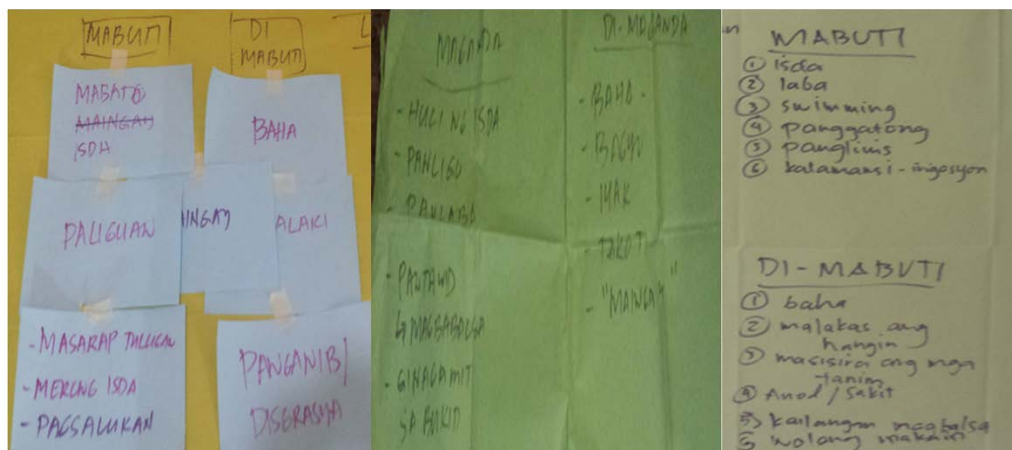 MABUTI
MABATO
MAINGAY
ISDA
PALIGUAN
- MASARAP
- MERONG ISDA
- PAGSALUKAN
DI
MABUTI
BAHA
AINGAY
ALAKI
PANGANIB/
DISGRASYA
MAGANDA
- HULI NG ISDA
- PANLIGO
- PANLABA
- PANTAWID
- GINAGAMIT
SA BUKID
DI-MAGANDA
- BAHA -
- BAGYO
- IYAK
- TAKOT
- "MAINGAY"
MABUTI
① isda
② laba
③ swimming
④ panggatong
⑤ panglinis
⑥ kalamansi - irigasyon
DI-MABUTI
① baha
② malakas ang
hangin
③ masisira ang mga
tanim
④ Anod / Sakit
⑤ kailangan magbalsa
⑥ walang makain